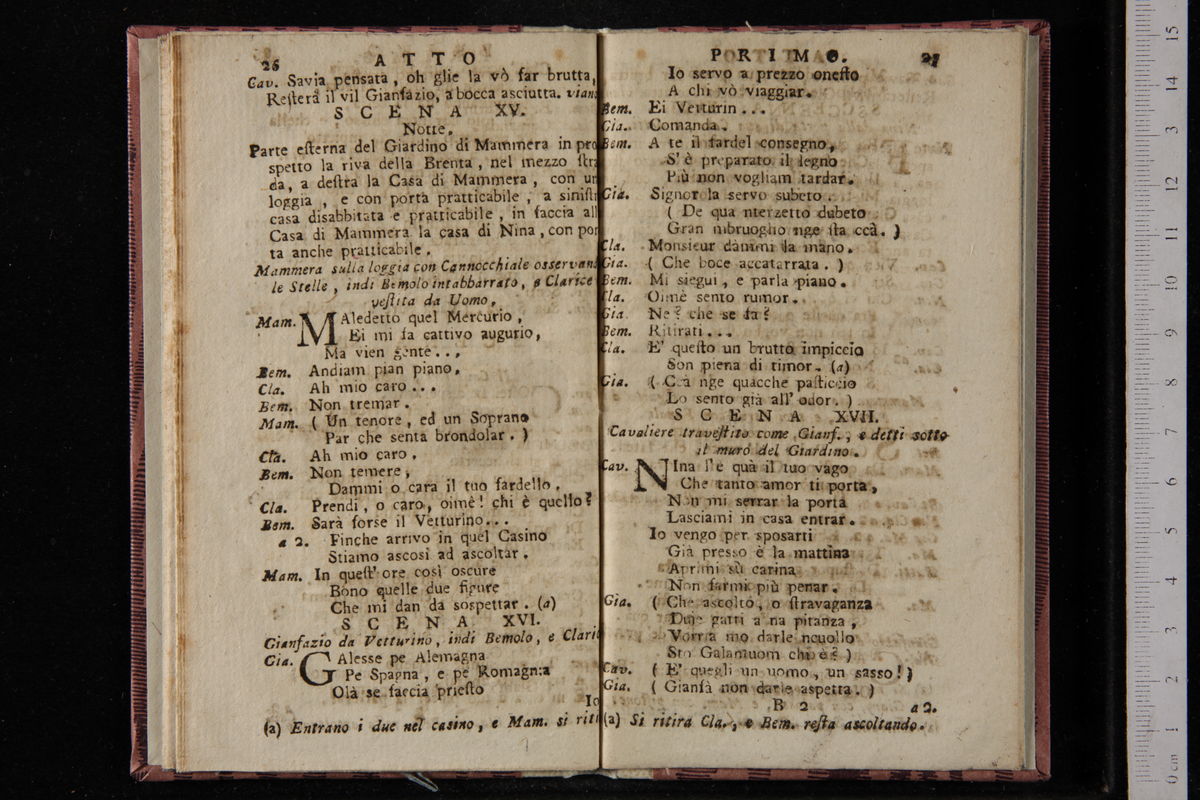 26
ATTO
Cav. Savia pensata, oh glie la vò far brutta,
Resterà il vil Gianfazio, a bocca asciutta. vian
SCENA XV.
Notte.
Parte esterna del Giardino di Mammera in pro
spetto la riva della Brenta, nel mezzo stra
da, a destra la Casa di Mammera, con un
loggia, e con porta pratticabile, a sinistr
casa disabbitata e pratticabile, in faccia all
Casa di Mammera la casa di Nina, con por
ta anche pratticabile.
Mammera sulla loggia con Cannocchiale osservan
le Stelle, indi Bemolo intabbarrato, e Clarice
vestita da Uomo.
Mam. MAledetto quel Mercurio,
Ei mi fa cattivo augurio,
Ma vien gente...
Bem. Andiam pian piano.
Cla. Ah mio caro...
Bem. Non tremar.
Mam. (Un tenore, ed un Soprano
Par che senta brondolar.)
Cla. Ah mio caro.
Bem. Non temere,
Dammi o cara il tuo fardello.
Cla. Prendi, o caro, oimè! chi è quello?
Bem. Sarà forse il Vetturino...
a 2. Finche arrivo in quel Casino
Stiamo ascosi ad ascoltar.
Mam. In quest' ore così oscure
Bono quelle due figure
Che mi dan da sospettar. (a)
SCENA XVI.
Gianfazio da Vetturino, indi Bemolo, e Claric
Gia. GAlesse pe Alemagna
Pe Spagna, e pe Romagna
Olà se faccia priesto
Io
(a) Entrano i due nel casino, e Mam. si riti
PORTIMO.
27
Io servo a prezzo onesto
A chi vò viaggiar.
Bem. Ei Vetturin...
Gia. Comanda.
Bem. A te il fardel consegno,
S' è preparato il legno
Più non vogliam tardar.
Gia. Signor la servo subeto.
(De qua nterzetto dubeto
Gran mbruoglio nge sta ccà.)
Cla. Monsieur dammi la mano.
Gia. (Che boce accatarrata.)
Bem. Mi siegui, e parla piano.
Cla. Oimè sento rumor.
Gia. Ne? che se fa?
Bem. Ritirati...
Cla. E' questo un brutto impiccio
Son piena di timor. (a)
Gia. (Ccà nge quacche pasticcio
Lo sento già all' odor.)
SCENA XVII.
Cavaliere travestito come Gianf., e detti sotto
il muro del Giardino.
Cav. NIna l'è quà il tuo vago
Che tanto amor ti porta,
Non mi serrar la porta
Lasciami in casa entrar.
Io vengo per sposarti
Già presso è la mattina
Aprimi sù carina
Non farmi più penar.
Gia. (Che ascolto, o stravaganza
Duje gatti a na pitanza,
Vorria mo darle ncuollo
Sto Galantuom chi è?)
Cav. (E' quegli un uomo, un sasso!)
Gia. (Gianfà non darle aspetta.)
B 2
a 2.
(a) Si ritira Cla., e Bem. resta ascoltando.